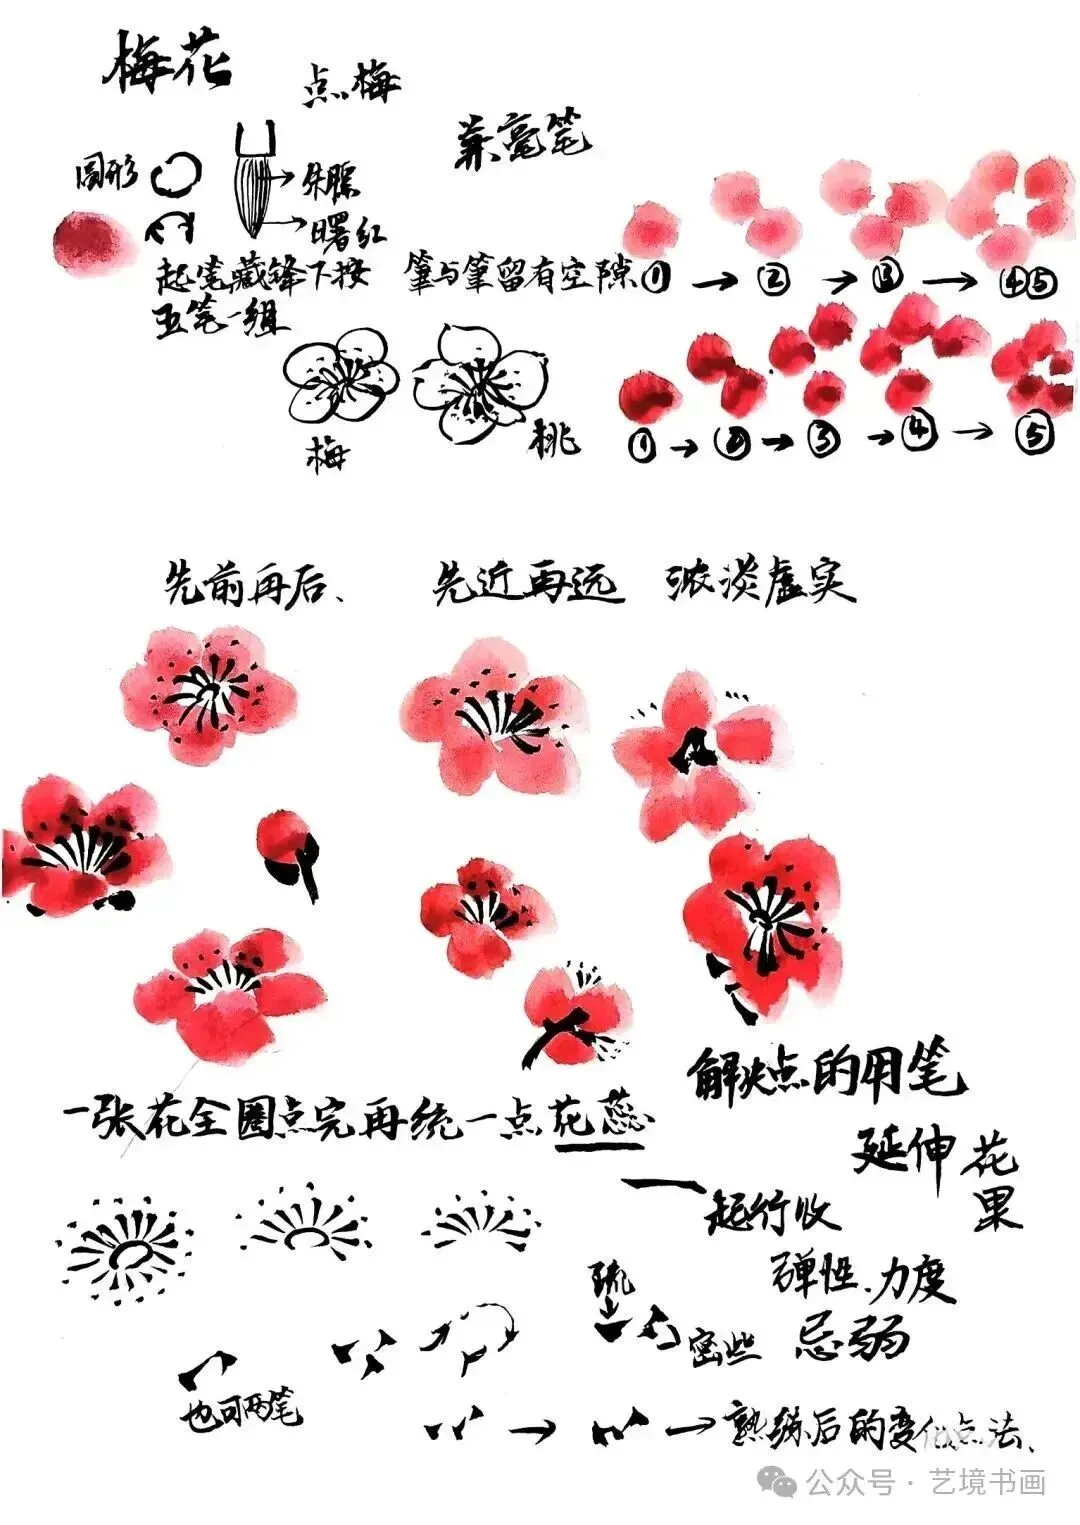 梅花
点梅
兼毫笔
圆形
朱膘
曙红
起笔藏锋下按
五笔一组
筆与筆留有空隙
① → ② → ③ → ④⑤
① → ② → ③ → ④ → ⑤
梅
桃
先前再后、
先近再远
浓淡虚实
一张花全圈点完再统一点花蕊
解决点的用笔
延伸花果
起行收
弹性、力度
忌弱
疏些
密些
也可两笔
熟练后的变化点法、
公众号·艺境书画